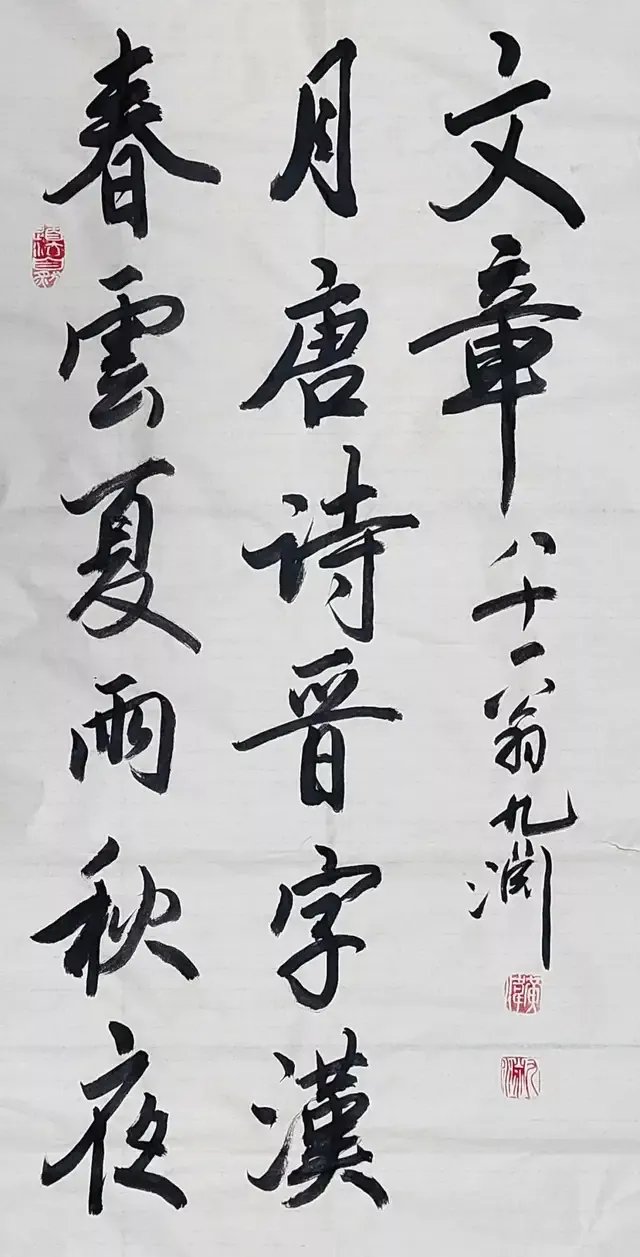 春雲夏雨秋夜
月唐诗晋字漢
文章
八十一翁九渊